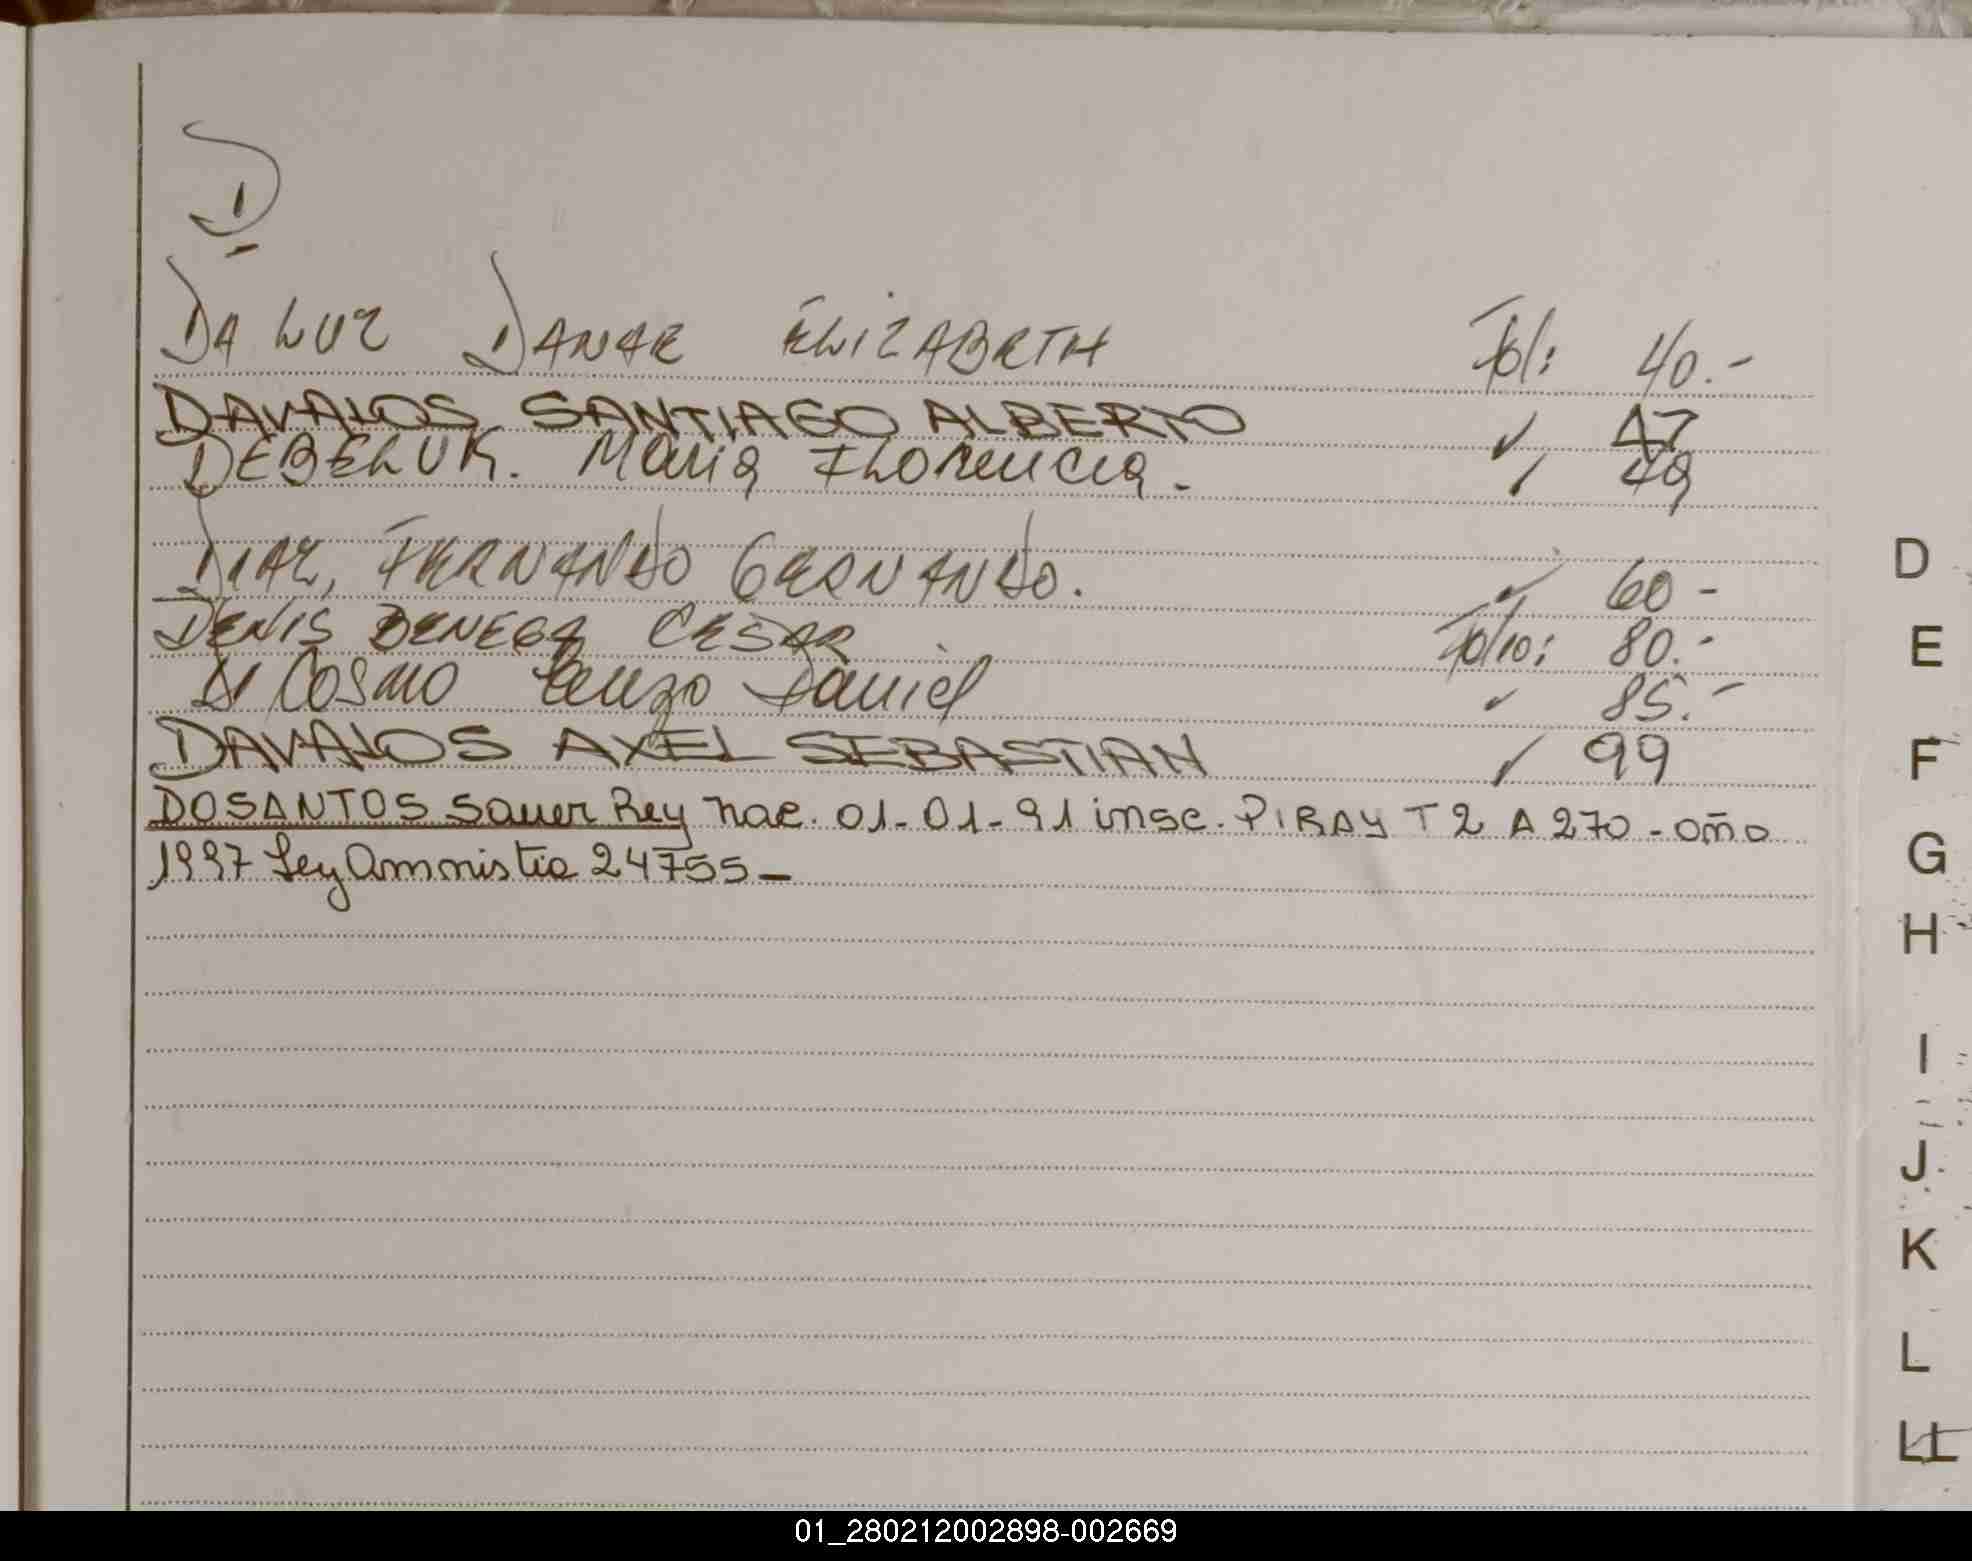 D
DA LUZ DANAE ELIZABETH Fol: 40.-
DAVALOS SANTIAGO ALBERTO ✓ 47
DEBELUK. Maria Florencia. ✓ 49
DIAZ, FERNANDO GERNANDO. ✓ 60-
DENIS BENEGA CESAR Folio: 80.-
Di Cosmo Enzo Daniel ✓ 85.-
DAVALOS AXEL SEBASTIAN ✓ 99
DOSANTOS Sauer Rey nac. 01-01-91 insc. PIRAY T 2 A 270 - año
1997 Ley Amnistia 24755-
D
E
F
G
H
I
J
K
L
LL
01_280212002898-002669